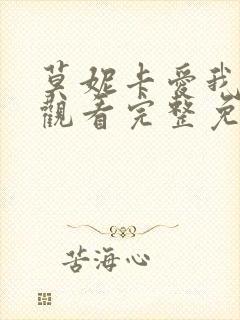 莫妮卡愛我
觀看完整免
苦海心